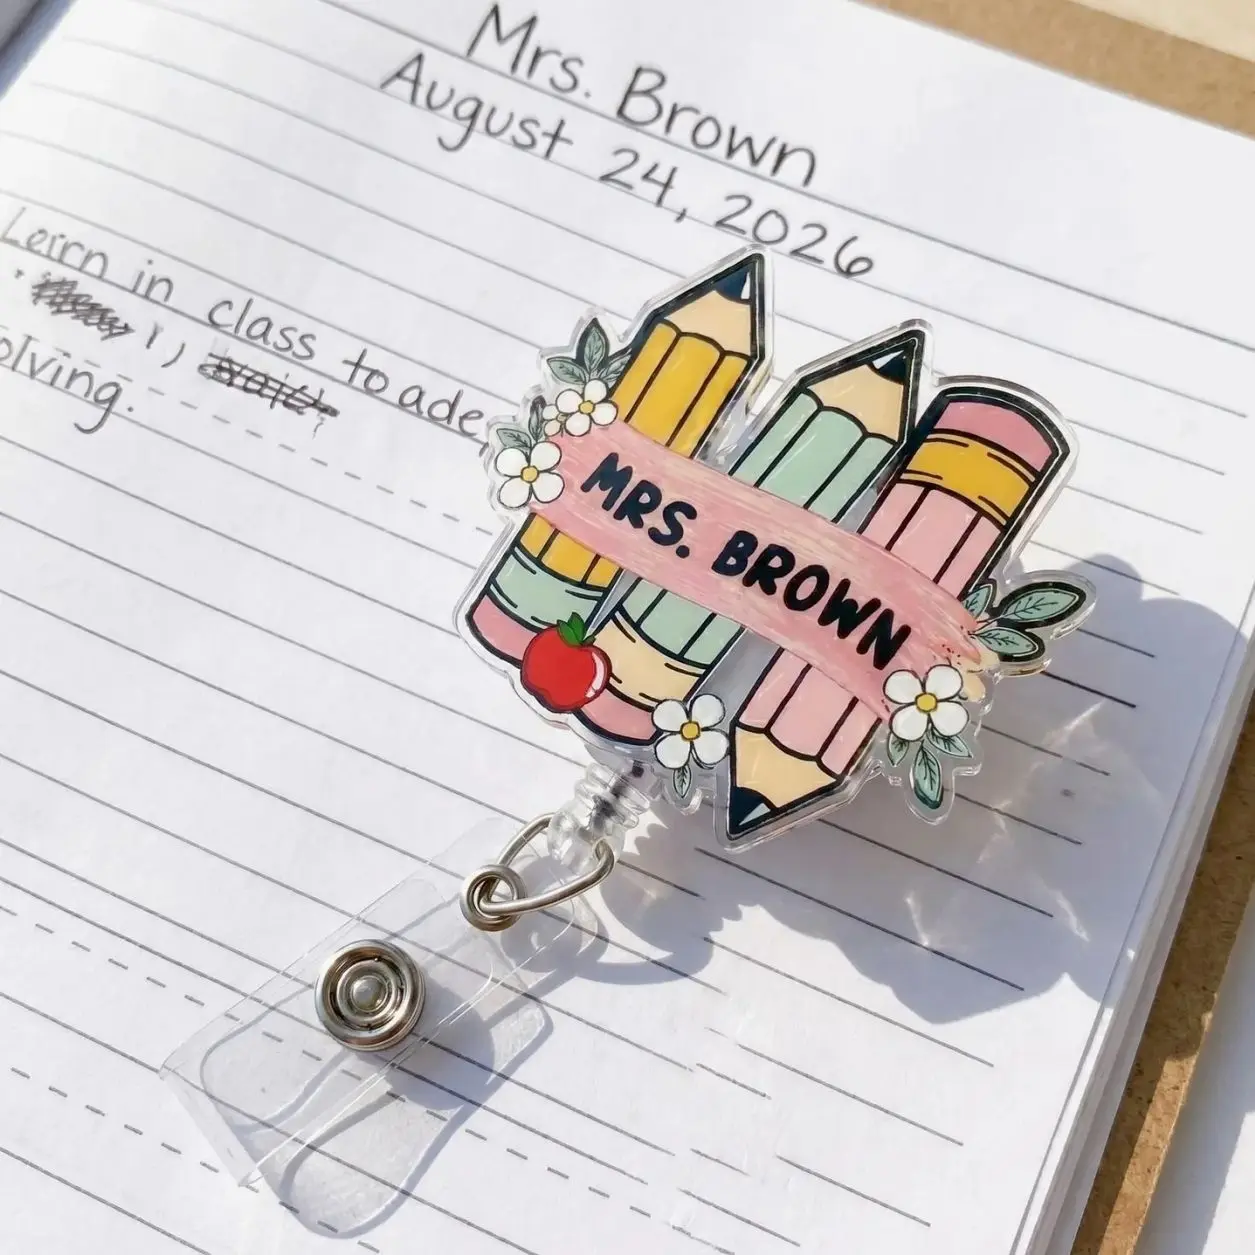 Mrs. Brown
August 24, 2026
Learn in class to ade
olving.
MRS. BROWN